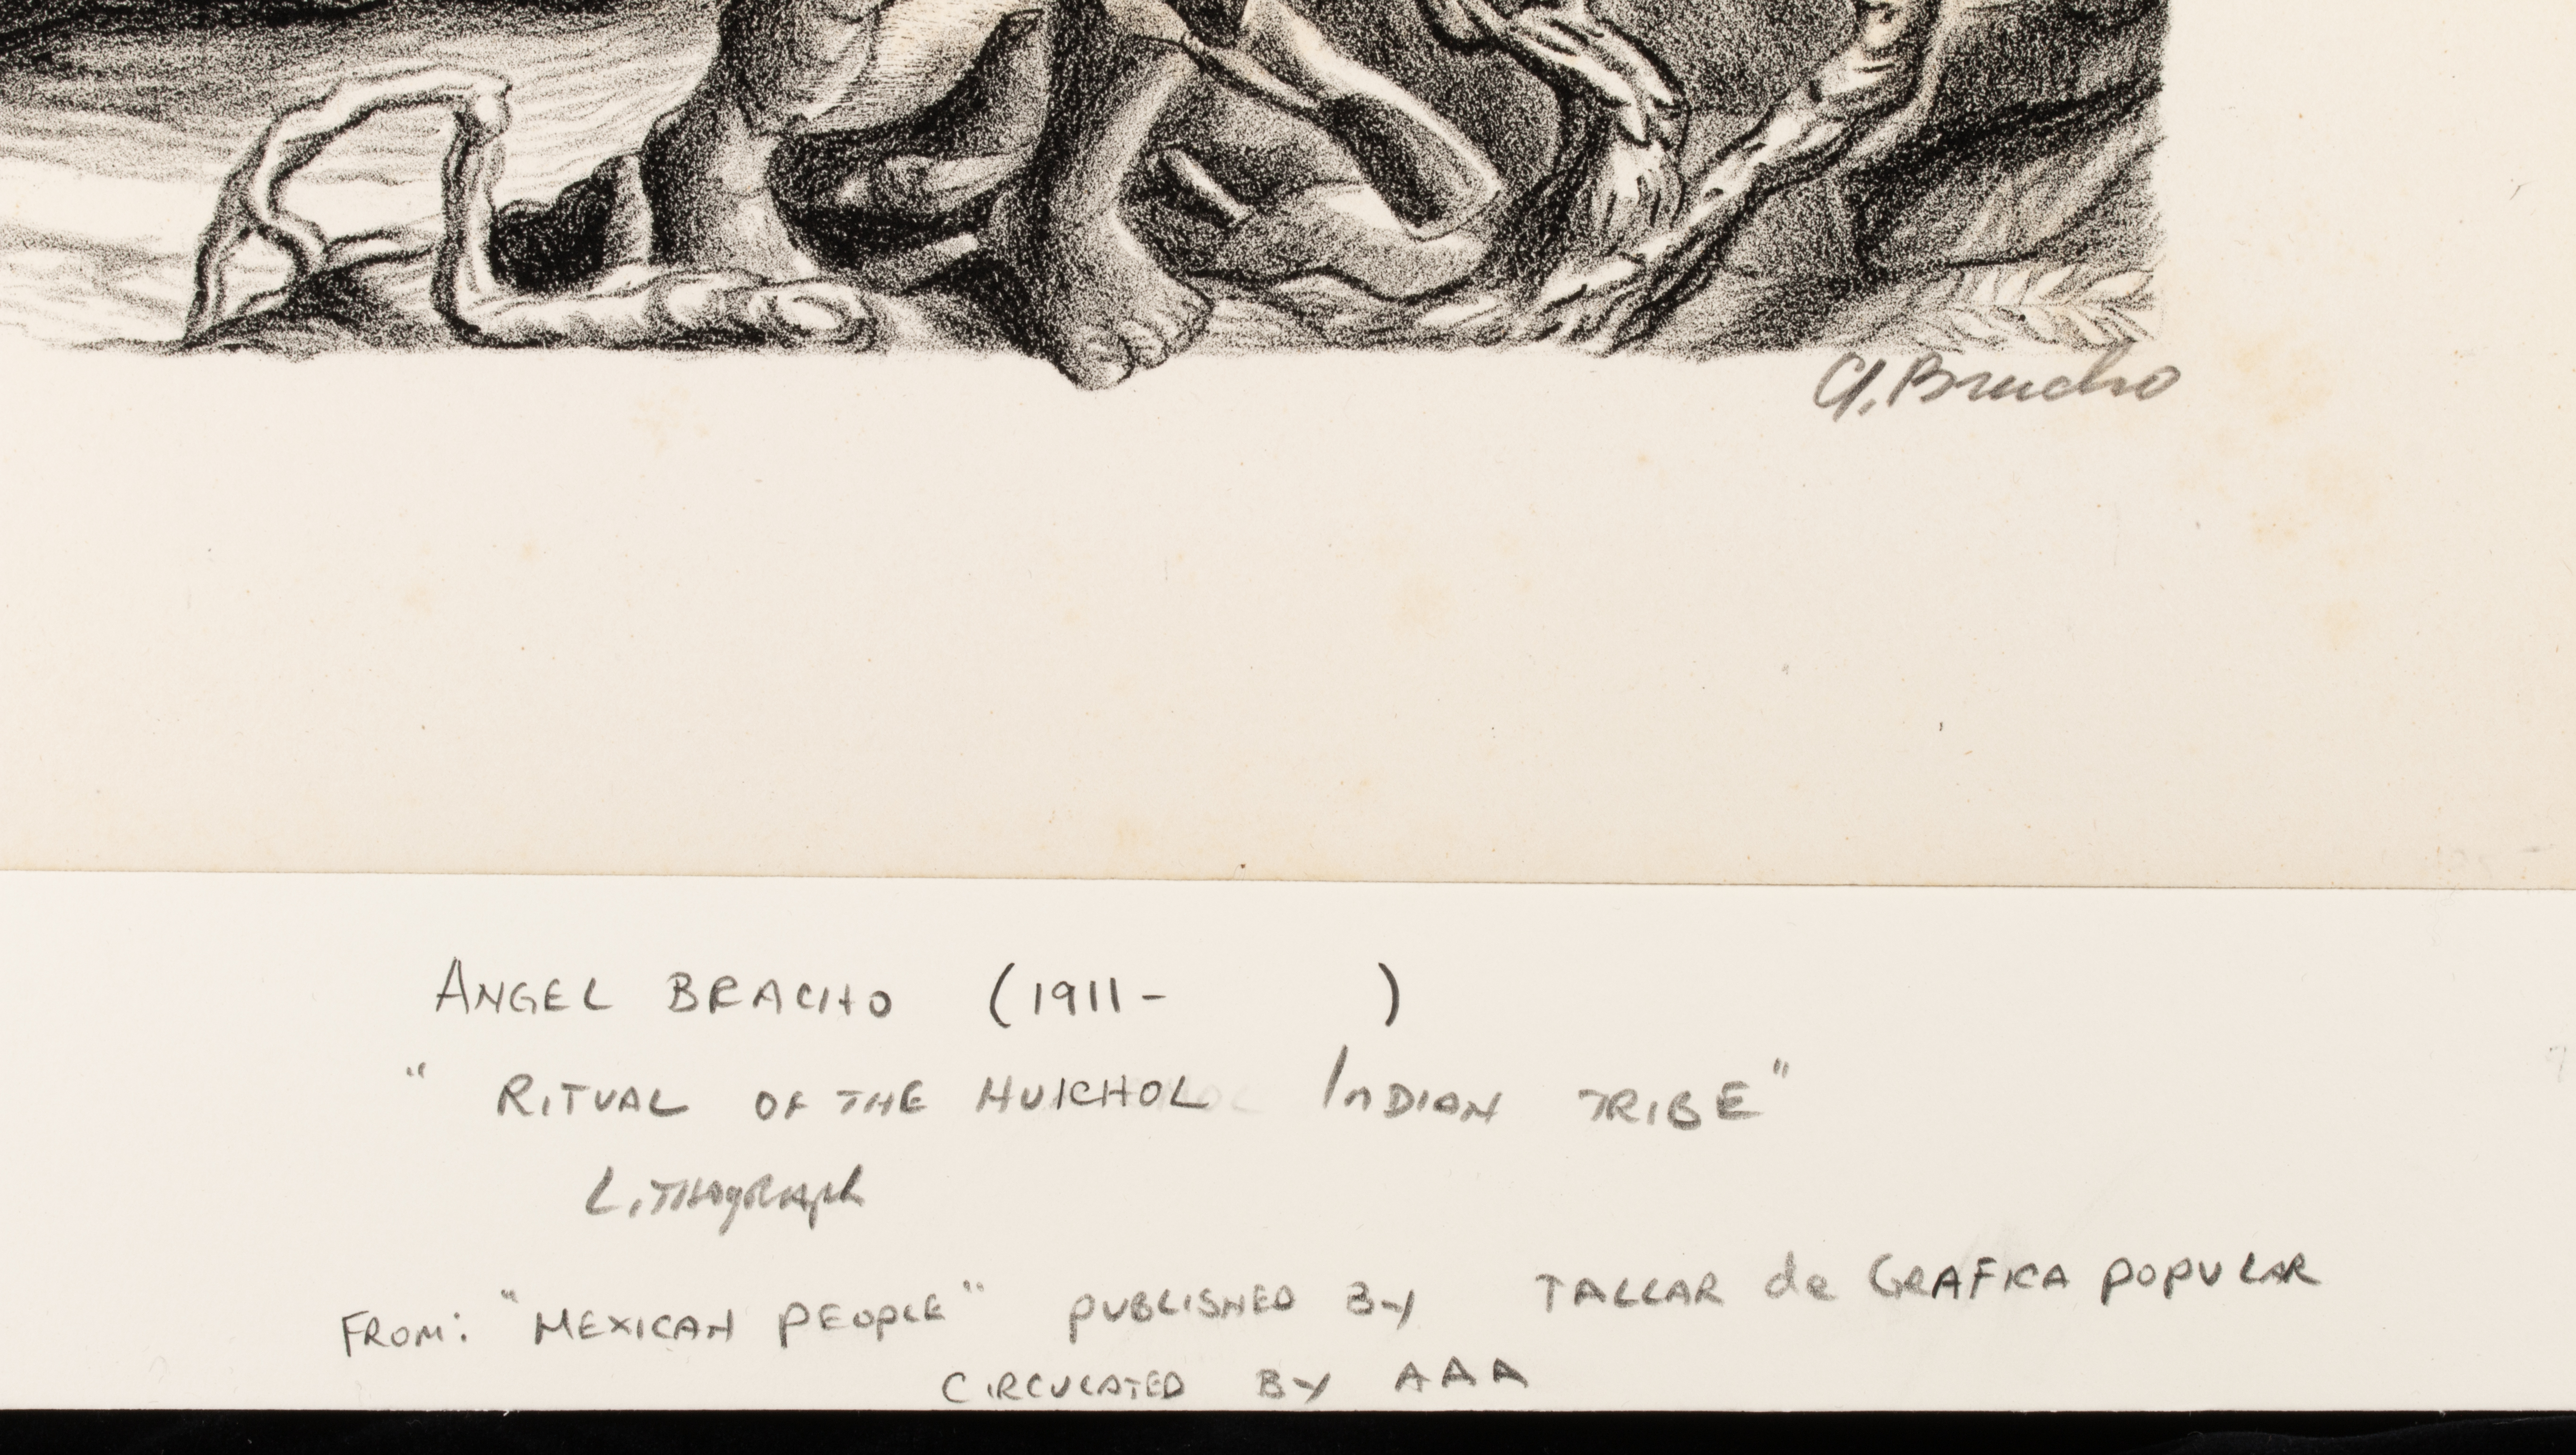 A. Bracho
ANGEL BRACHO (1911- )
" RITUAL OF THE HUICHOL INDIAN TRIBE"
LITHOGRAPH
FROM: "MEXICAN PEOPLE" PUBLISHED BY TALLAR de GRAFICA POPULAR
CIRCULATED BY AAA